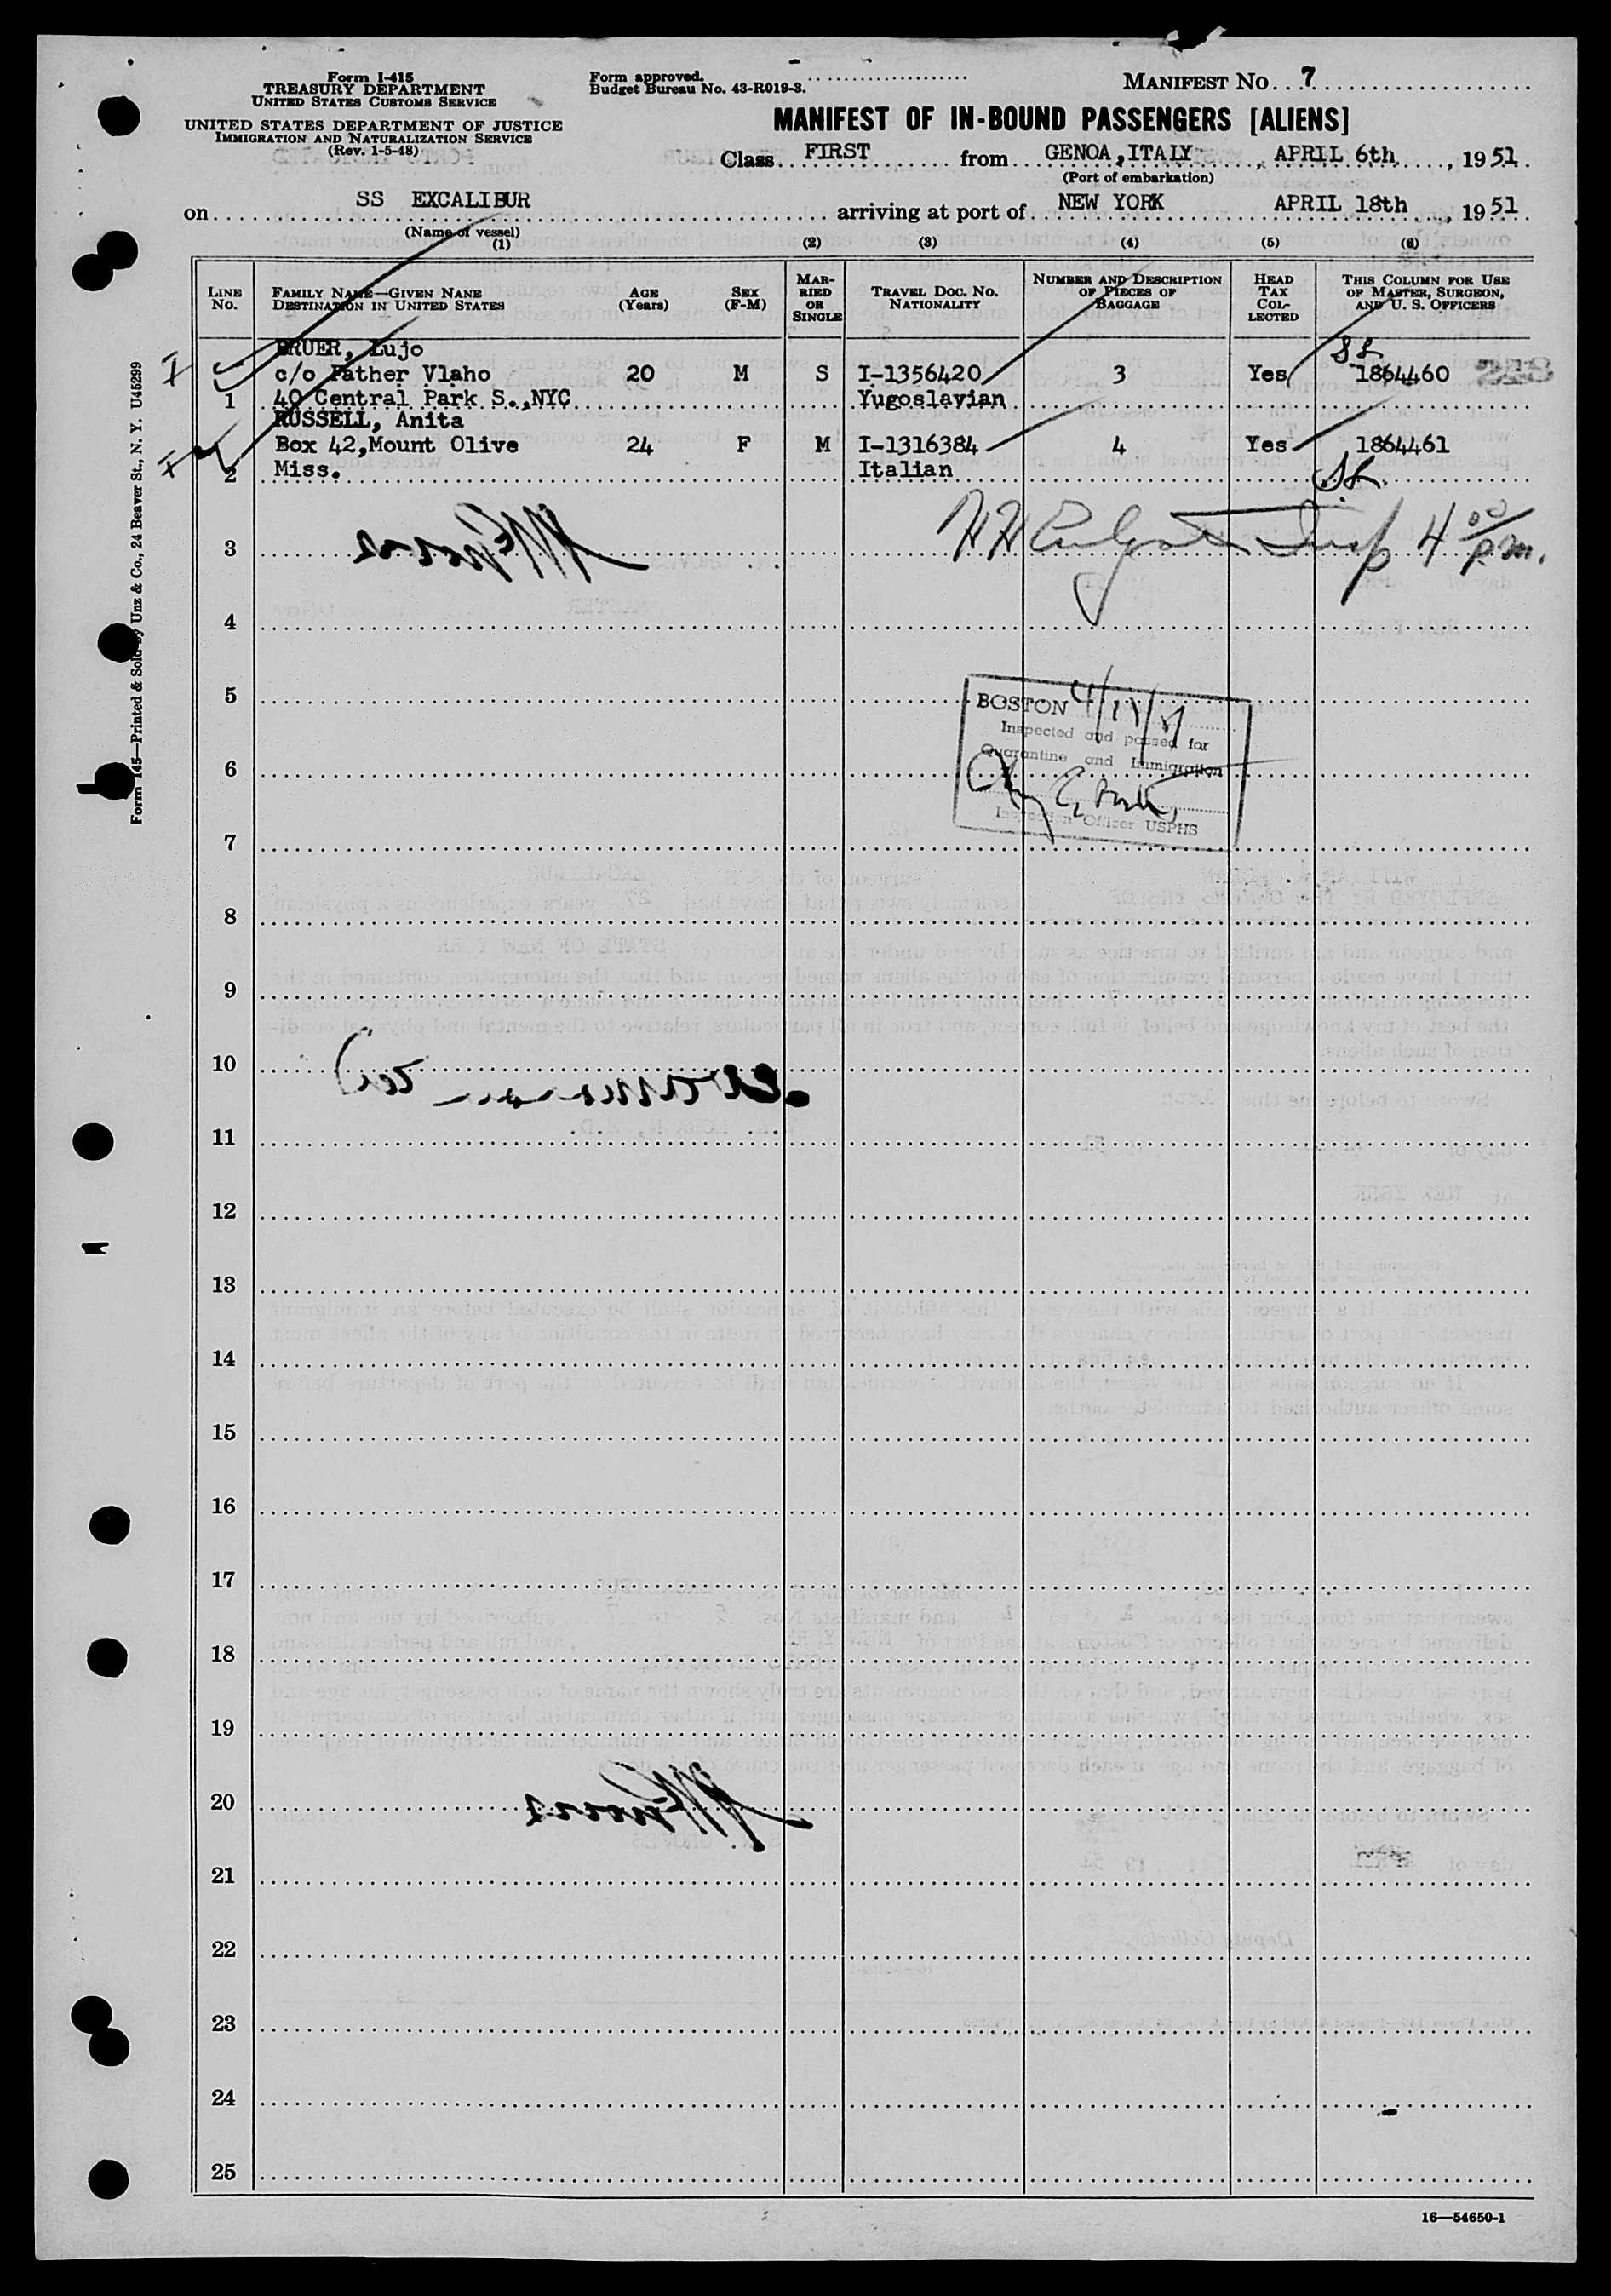 Form I-415
TREASURY DEPARTMENT
UNITED STATES CUSTOMS SERVICE
UNITED STATES DEPARTMENT OF JUSTICE
IMMIGRATION AND NATURALIZATION SERVICE
(Rev. 1-5-48)
Form approved.
Budget Bureau No. 43-R019-3.
MANIFEST NO. 7
MANIFEST OF IN-BOUND PASSENGERS [ALIENS]
Class FIRST from GENOA, ITALY, APRIL 6th, 1951
(Port of embarkation)
on SS EXCALIBUR arriving at port of NEW YORK APRIL 18th, 1951
(Name of vessel)
(1) (2) (3) (4) (5) (6)
LINE NO.
FAMILY NAME—GIVEN NANE
DESTINATION IN UNITED STATES
AGE (Years)
SEX (F-M)
MARRIED OR SINGLE
TRAVEL DOC. NO. NATIONALITY
NUMBER AND DESCRIPTION OF PIECES OF BAGGAGE
HEAD TAX COLLECTED
THIS COLUMN FOR USE OF MASTER, SURGEON, AND U. S. OFFICERS
BRUER, Lujo
c/o Father Vlaho 20 M S I-1356420 3 Yes 1864460
1 40 Central Park S.,NYC Yugoslavian
RUSSELL, Anita
Box 42,Mount Olive 24 F M I-1316384 4 Yes 1864461
2 Miss. Italian
3
Insp 4 00 p.m.
4
5
BOSTON
Inspected and passed for
Quarantine and Immigration
Inspection Officer USPHS
6
7
8
9
10
11
12
13
14
15
16
17
18
19
20
21
22
23
24
25
16—54650-1
Form 145—Printed & Sold by Unz & Co., 24 Beaver St., N. Y. U45299